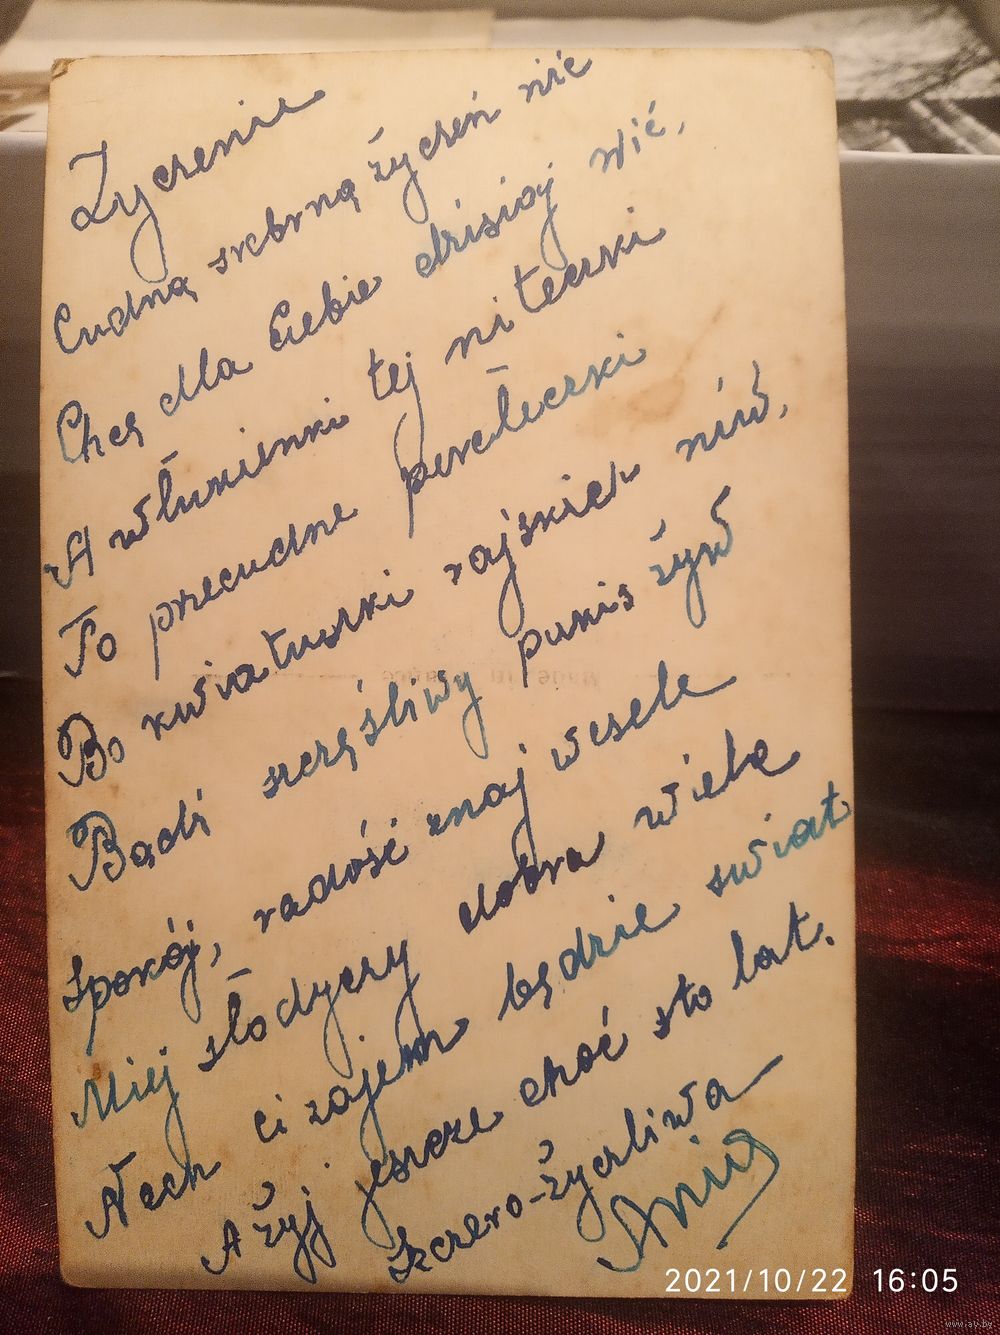 Życzenie
Cudną srebrną życzeń nić
Chcę dla Ciebie dzisiaj wić,
A włukienki tej niteczki
To przecudne pereleczki
Bo kwiatuszki rajskich niw,
Bądź szczęśliwy pukis żyw
Spokój, radość znaj wesele
Miej słodyczy dobra wiele
Niech ci zajem będzie swiat
A żyj jeszcze choć sto lat.
Szczero-życzliwa
Made in France
2021/10/22 16:05
www.ay.by